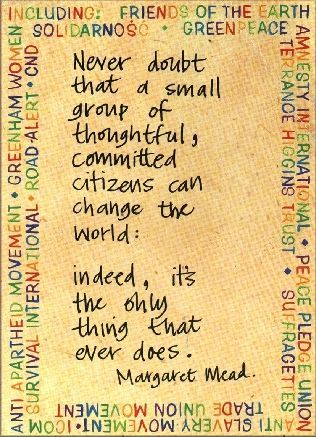 INCLUDING: FRIENDS OF THE EARTH
SOLIDARNOŚĆ • GREENPEACE
AMNESTY INTERNATIONAL • PEACE PLEDGE UNION
TERRANCE HIGGINS TRUST • SUFFRAGETTES
ANTI SLAVERY MOVEMENT • ICOM
TRADE UNION MOVEMENT
ANTI APARTHEID MOVEMENT • GREENHAM WOMEN
SURVIVAL INTERNATIONAL • ROAD ALERT • CND
Never doubt
that a small
group of
thoughtful,
committed
citizens can
change the
world:
indeed, it's
the only
thing that
ever does.
Margaret Mead.